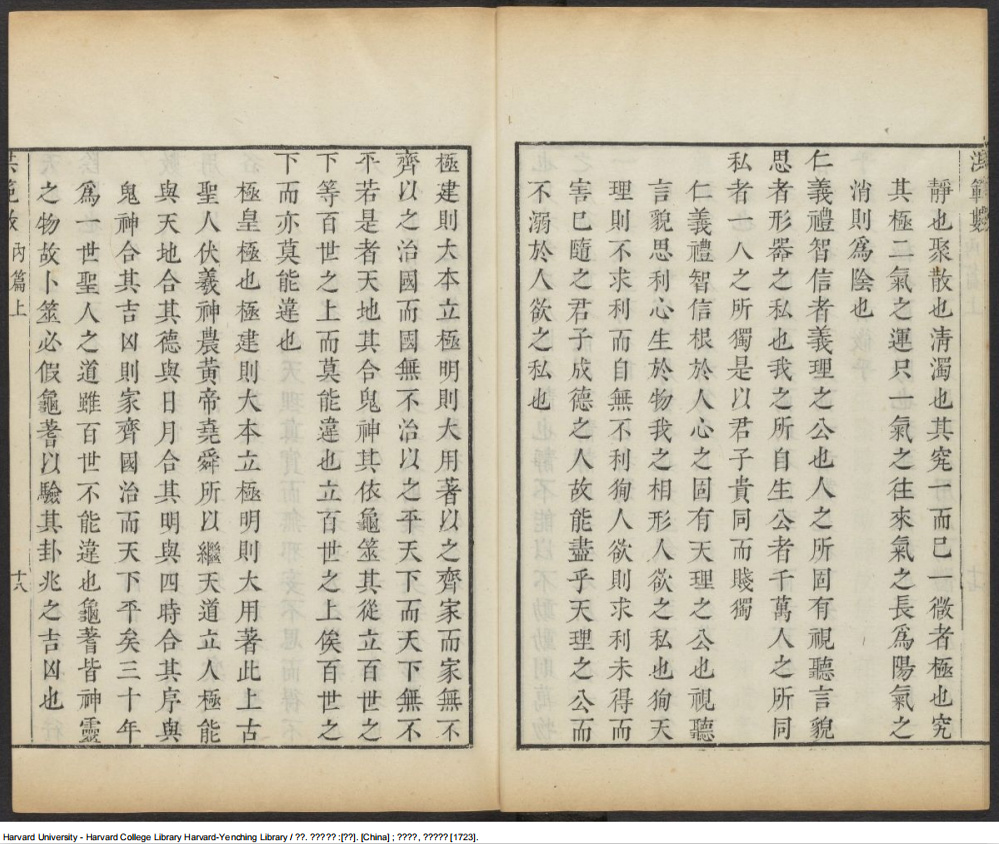 洪範數
靜也聚散也清濁也其究一而已一徵者極也究
其極二氣之運只一氣之往來氣之長爲陽氣之
消則爲陰也
仁義禮智信者義理之公也人之所固有視聽言貌
思者形器之私也我之所自生公者千萬人之所同
私者一人之所獨是以君子貴同而賤獨
仁義禮智信根於人心之固有天理之公也視聽
言貌思利心生於物我之相形人欲之私也狥天
理則不求利而自無不利狥人欲則求利未得而
害已隨之君子成德之人故能盡乎天理之公而
不溺於人欲之私也
極建則大本立極明則大用著以之齊家而家無不
齊以之治國而國無不治以之平天下而天下無不
平若是者天地其合鬼神其依龜筮其從立百世之
下等百世之上而莫能違也立百世之上俟百世之
下而亦莫能違也
極皇極也極建則大本立極明則大用著此上古
聖人伏羲神農黃帝堯舜所以繼天道立人極能
與天地合其德與日月合其明與四時合其序與
鬼神合其吉凶則家齊國治而天下平矣三十年
爲一世聖人之道雖百世不能違也龜蓍皆神靈
之物故卜筮必假龜蓍以驗其卦兆之吉凶也
內篇上
十八
Harvard University - Harvard College Library Harvard-Yenching Library / ??. ????? :[??]. [China] ; ????, ????? [1723].